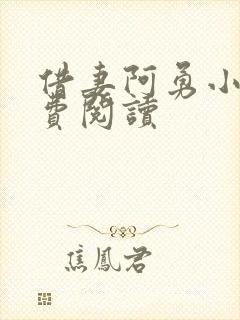 借妻阿勇小
費閱讀
焦鳳君